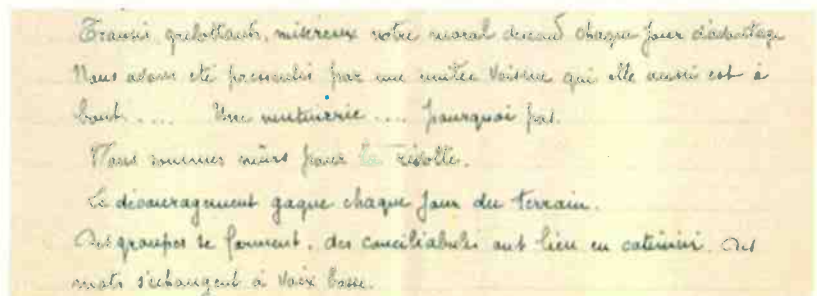 Transis, grelottants, miséreux notre moral descend chaque jour d'avantage
Nous avons été pressentis par une unitée voisine qui elle aussi est à
bout.... Une mutinerie.... pourquoi pas.
Nous sommes mûrs pour la révolte.
Le découragement gagne chaque jour du terrain.
Des groupes se forment, des conciliabules ont lieu en catimini. Des
mots s'échangent à voix basse.